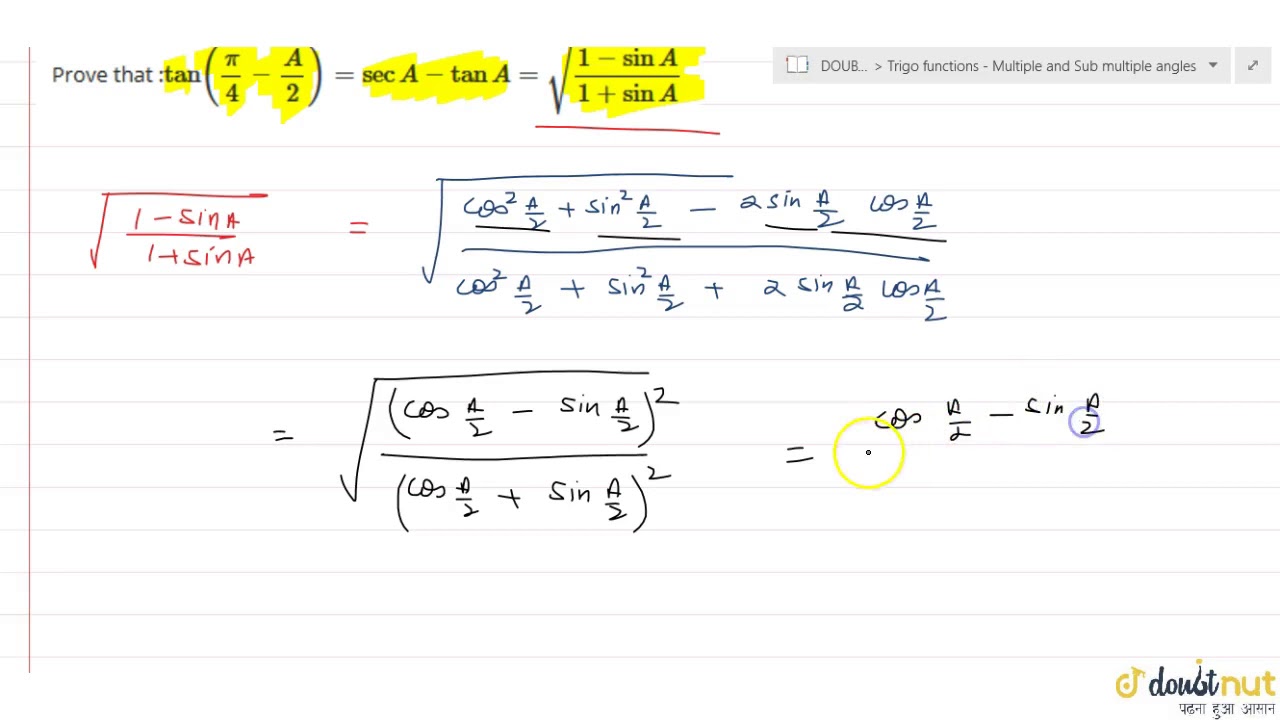 Prove that : tan(π/4 − A/2) = sec A − tan A = √((1 − sin A)/(1 + sin A))
DOUB... > Trigo functions - Multiple and Sub multiple angles
√((1 − sin A)/(1 + sin A)) = √((cos² A/2 + sin² A/2 − 2 sin A/2 cos A/2)/(cos² A/2 + sin² A/2 + 2 sin A/2 cos A/2))
= √((cos A/2 − sin A/2)²/(cos A/2 + sin A/2)²) = cos A/2 − sin A/2
doubtnut
पढना हुआ आसान